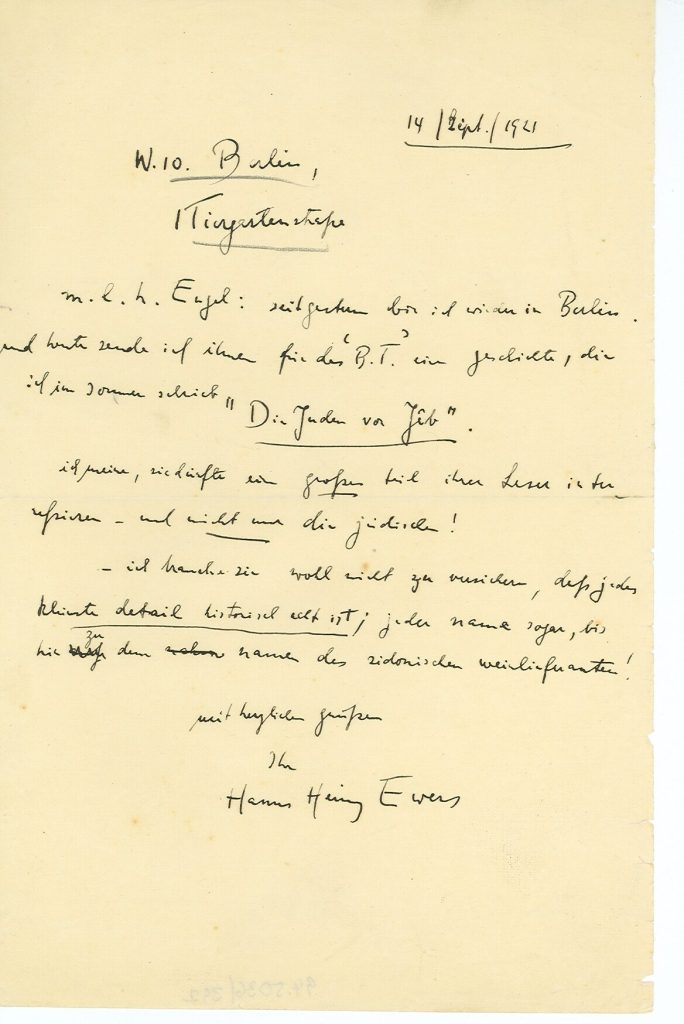 14/Sept./1921
W.10. Berlin,
1 Tiergartenstraße
m.l.h. Engel: seit gestern bin ich wieder in Berlin.
und heute sende ich ihnen für das 'B.T.' eine geschichte, die
ich im sommer schrieb
"Die Juden von Jêb".
ich meine, sie dürfte ein großen teil ihrer Leser inte-
ressieren – und nicht nur die jüdischen!
– ich brauche sie wohl nicht zu versichern, daß jedes
kleinste detail historisch echt ist; jeder name sogar, bis
hin zu dem namen des sidonischen weinlieferanten!
mit herzlichen grüßen
Ihr
Hanns Heinz Ewers
94.5036/232